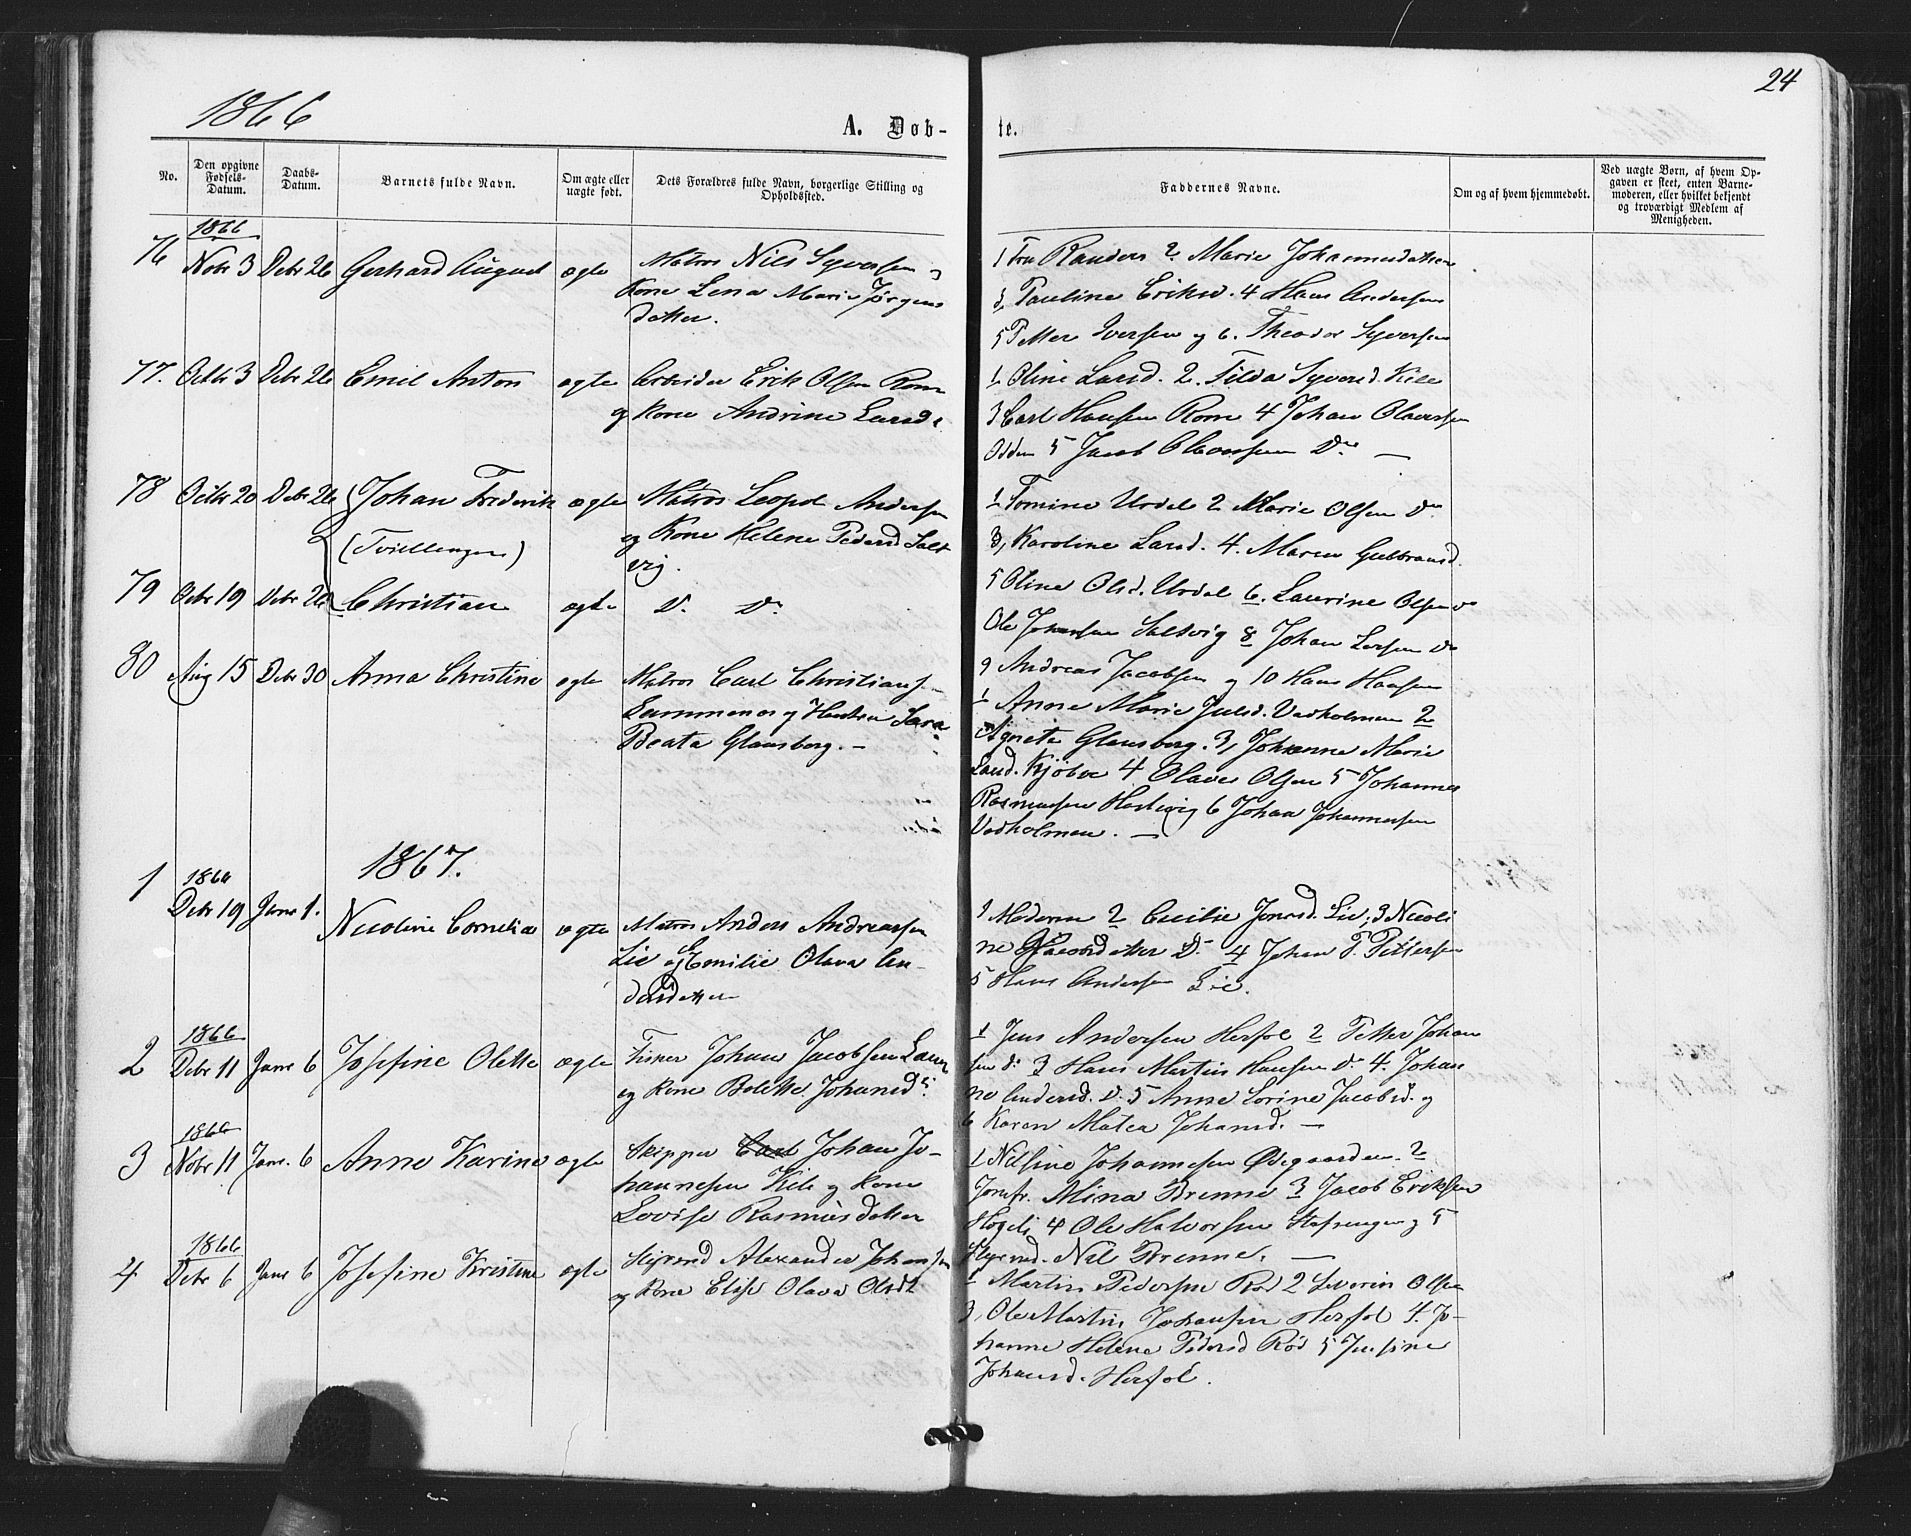 24
1866
A. Døb-
te.
No.
Den opgivne Fødsels-Datum.
Daabs-Datum.
Barnets fulde Navn.
Om ægte eller uægte født.
Dets Forældres fulde Navn, borgerlige Stilling og Opholdssted.
Faddernes Navne.
Om og af hvem hjemmedøbt.
Ved uægte Børn, af hvem Op-
gaven er skeet, enten Barne-
moderen, eller hvilket bekjendt
og troværdigt Medlem af
Menigheden.
1866
76 Novbr 3 Debr 26 Gerhard August ægte Matros Nils Syversen og
Kone Lena Marie Jørgens
datter.
1 Fru Randers 2 Marie Johannesdatter
3 Pauline Eriksd. 4 Hans Andersen
5 Petter Iversen og 6. Theodor Syversen
77. Octbr 3 Debr 26 Emil Anton ægte Arbeider Erik Olsen Rom
og Kone Andrine Larsd.
1 Oline Larsd. 2. Tilda Syversd. Kile
3 Carl Hansen Rom 4 Johan Olavesen
Odden 5 Jacob Olavesen Do —
78 Octbr 20 Debr 26 Johan Frederik ægte Matros Leopol Andersen
(Tvillinger)
og Kone Helene Pedersd Salt
vig.
1 Tomine Urdal 2 Marie Olsen Do
3, Karoline Larsd. 4. Maren Gulbransd.
79 Octbr 19 Debr 26 Christian ægte D. Do
5 Oline Olsd. Urdal 6. Laurine Olsen Do
Ole Johansen Saltvig 8 Johan Larsen Do
9 Andreas Jacobsen og 10 Hans Hansen
80 Aug 15 Debr 30 Anna Christine ægte Matros Carl Christiansen
og Hustru Sara
Beata Glansberg. —
1 Anne Marie Julsd. Vadholmen 2
Agneta Glansberg. 3, Johanne Marie
4 Olaves Olsen 5 Johannes
Rasmussen 6 Johan Johannessen
Vadholmen. —
1867.
1 1866
Debr 19 Janr 1. Nicoline Cornelia ægte Matros Anders Andreassen
Lie og Emilie Olava An-
dersdatter
1 Moderen 2 Cecilie Jonasd. Lie, 3 Nicoli
ne D. 4 Johan P. Pettersen
5 Hans Andersen Lie.
2 1866
Debr 11 Janr 6 Josefine Olette ægte Fisker Johan Jacobsen
og Kone Bolette Johansd.
1 Jens Andersen Herføl 2 Petter Johan
sen do 3 Hans Martin Hansen Do 4. Johan
ne Andersd. D. 5 Anne Lorine Jacobsd. og
6 Karen Matea Johansd. —
3 1866
Novbr 11 Janr. 6 Anne Karine ægte Skipper Carl Johan Jo-
hannesen Kile og Kone
Lovise Rasmusdatter
1 Nilsine Johannesen Ødegaarden. 2
Jomfr. Mina Brenne 3 Jacob Eriksen
4 Ole Halvorsen og 5
Nil Brenne. —
4 1866
Debr 6 Janr 6 Josefine Kristine ægte Alexander Johansen
og Kone Elise Olava Olsdt
1 Martin Pedersen Rød 2 Severin Olsen
3, Ole Martin Johansen Herføl 4. Jo-
hanne Helene Pedersd Rød 5 Jensine
Johansd. Herføl.